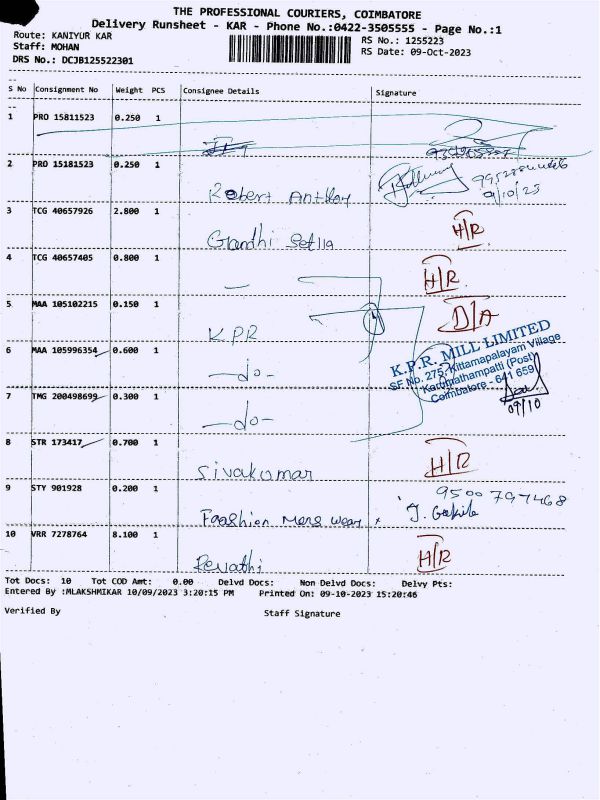 THE PROFESSIONAL COURIERS, COIMBATORE
Delivery Runsheet - KAR - Phone No.:0422-3505555 - Page No.:1
Route: KANIYUR KAR
RS No.: 1255223
Staff: MOHAN
RS Date: 09-Oct-2023
DRS No.: DCJB125522301
S No Consignment No Weight PCS Consignee Details Signature
1 PRO 15811523 0.250 1
2 PRO 15181523 0.250 1 Robert Antony
9/10/23
3 TCG 40657926 2.800 1 Gandhi H/R
4 TCG 40657405 0.800 1 — H/R
5 MAA 105102215 0.150 1 KPR D/A
6 MAA 105996354 0.600 1 —do-
K.P.R. MILL LIMITED
SF No. 275, Kittamapalayam Village
Karumathampatti (Post)
Coimbatore - 641 659
7 TMG 200498699 0.300 1 —do-
09/10
8 STR 173417 0.700 1 Sivakumar H/R
9 STY 901928 0.200 1 Faashion Mens wear
9500797468
10 VRR 7278764 8.100 1 Revathi H/R
Tot Docs: 10 Tot COD Amt: 0.00 Delvd Docs: Non Delvd Docs: Delvy Pts:
Entered By :MLAKSHMIKAR 10/09/2023 3:20:15 PM Printed On: 09-10-2023 15:20:46
Verified By Staff Signature